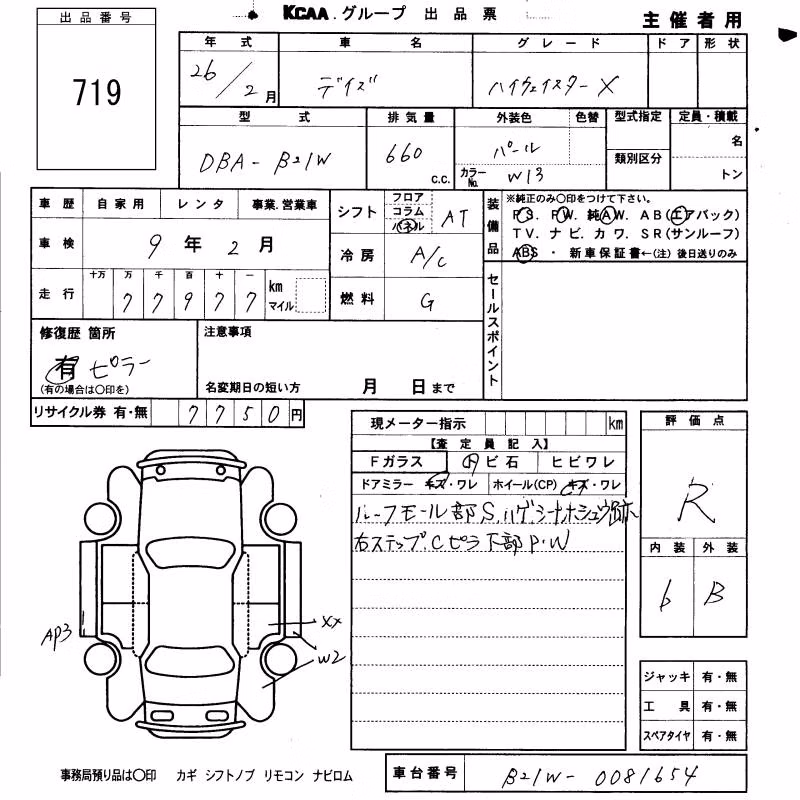 KCAA.グループ 出品票
主催者用
出品番号
719
年式 車名 グレード ドア 形状
26/2月 デイズ ハイウェイスターX
型式 排気量 外装色 色替 型式指定 定員・積載
DBA-B21W 660 c.c. パール 名
カラーNo. W13 類別区分 トン
車歴 自家用 レンタ 事業.営業車
車検 9年2月
走行 十万 万 千 百 十 一
77977 km マイル
シフト フロア コラム パネル AT
冷房 A/C
燃料 G
装備品 ※純正のみ〇印をつけて下さい。
P.S. P.W. 純A.W. AB(エアバック)
T V. ナビ. カワ. SR(サンルーフ)
ABS ・ 新車保証書←(注)後日送りのみ
セールスポイント
修復歴 箇所
有 ピラー
(有の場合は〇印を)
注意事項
名変期日の短い方 月 日まで
リサイクル券 有・無 7750円
現メーター指示 km
【査定員記入】
Fガラス 凹 ビ石 ヒビワレ
ドアミラー キズ・ワレ ホイール(CP) キズ・ワレ
ルーフモール部S.ハゲシナホシュウ跡
右ステップ.Cピラ下部P.W
評価点
R
内装 外装
6 B
AP3
XX
W2
ジャッキ 有・無
工具 有・無
スペアタイヤ 有・無
事務局預り品は〇印 カギ シフトノブ リモコン ナビロム
車台番号 B21W-0081654